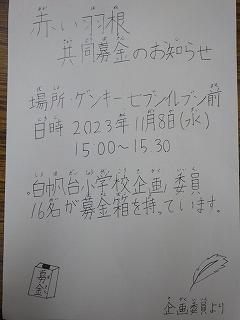 赤い羽根
共同募金のお知らせ
場所・ゲンキー、セブンイレブン前
日時 2023年11月8日(水)
15:00~15:30
・白帆台小学校企画委員
16名が募金箱を持っています。
募金
企画委員より